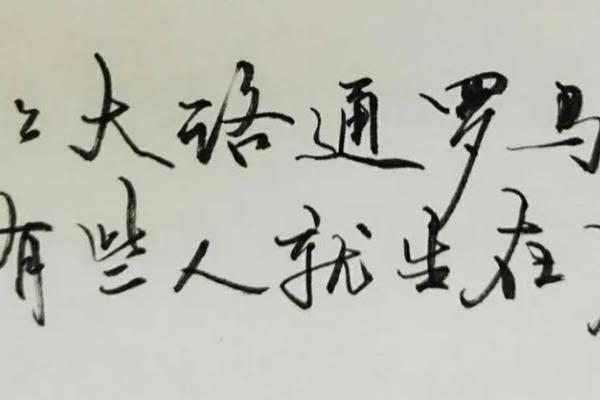 大路通罗马
有些人就生在